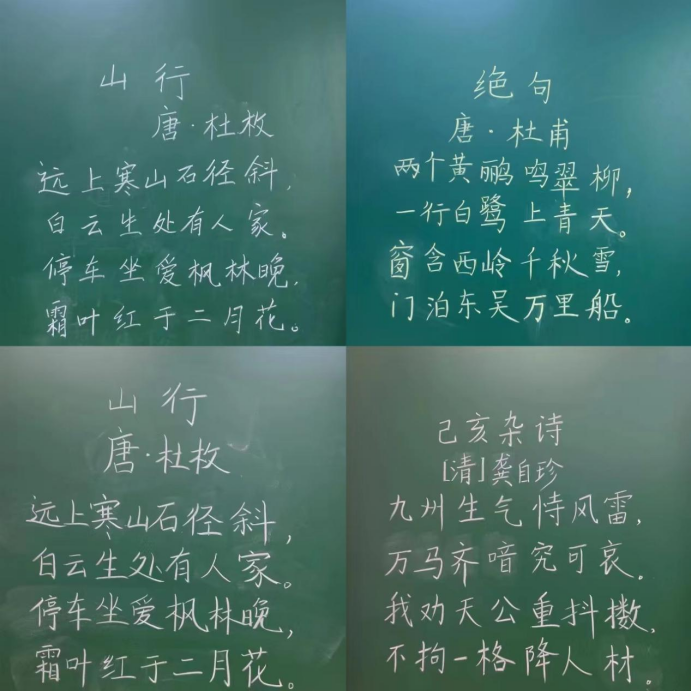 山行
唐·杜枚
远上寒山石径斜,
白云生处有人家。
停车坐爱枫林晚,
霜叶红于二月花。
绝句
唐·杜甫
两个黄鹂鸣翠柳,
一行白鹭上青天。
窗含西岭千秋雪,
门泊东吴万里船。
山行
唐·杜枚
远上寒山石径斜,
白云生处有人家。
停车坐爱枫林晚,
霜叶红于二月花。
己亥杂诗
[清]龚自珍
九州生气恃风雷,
万马齐喑究可哀。
我劝天公重抖擞,
不拘一格降人材。